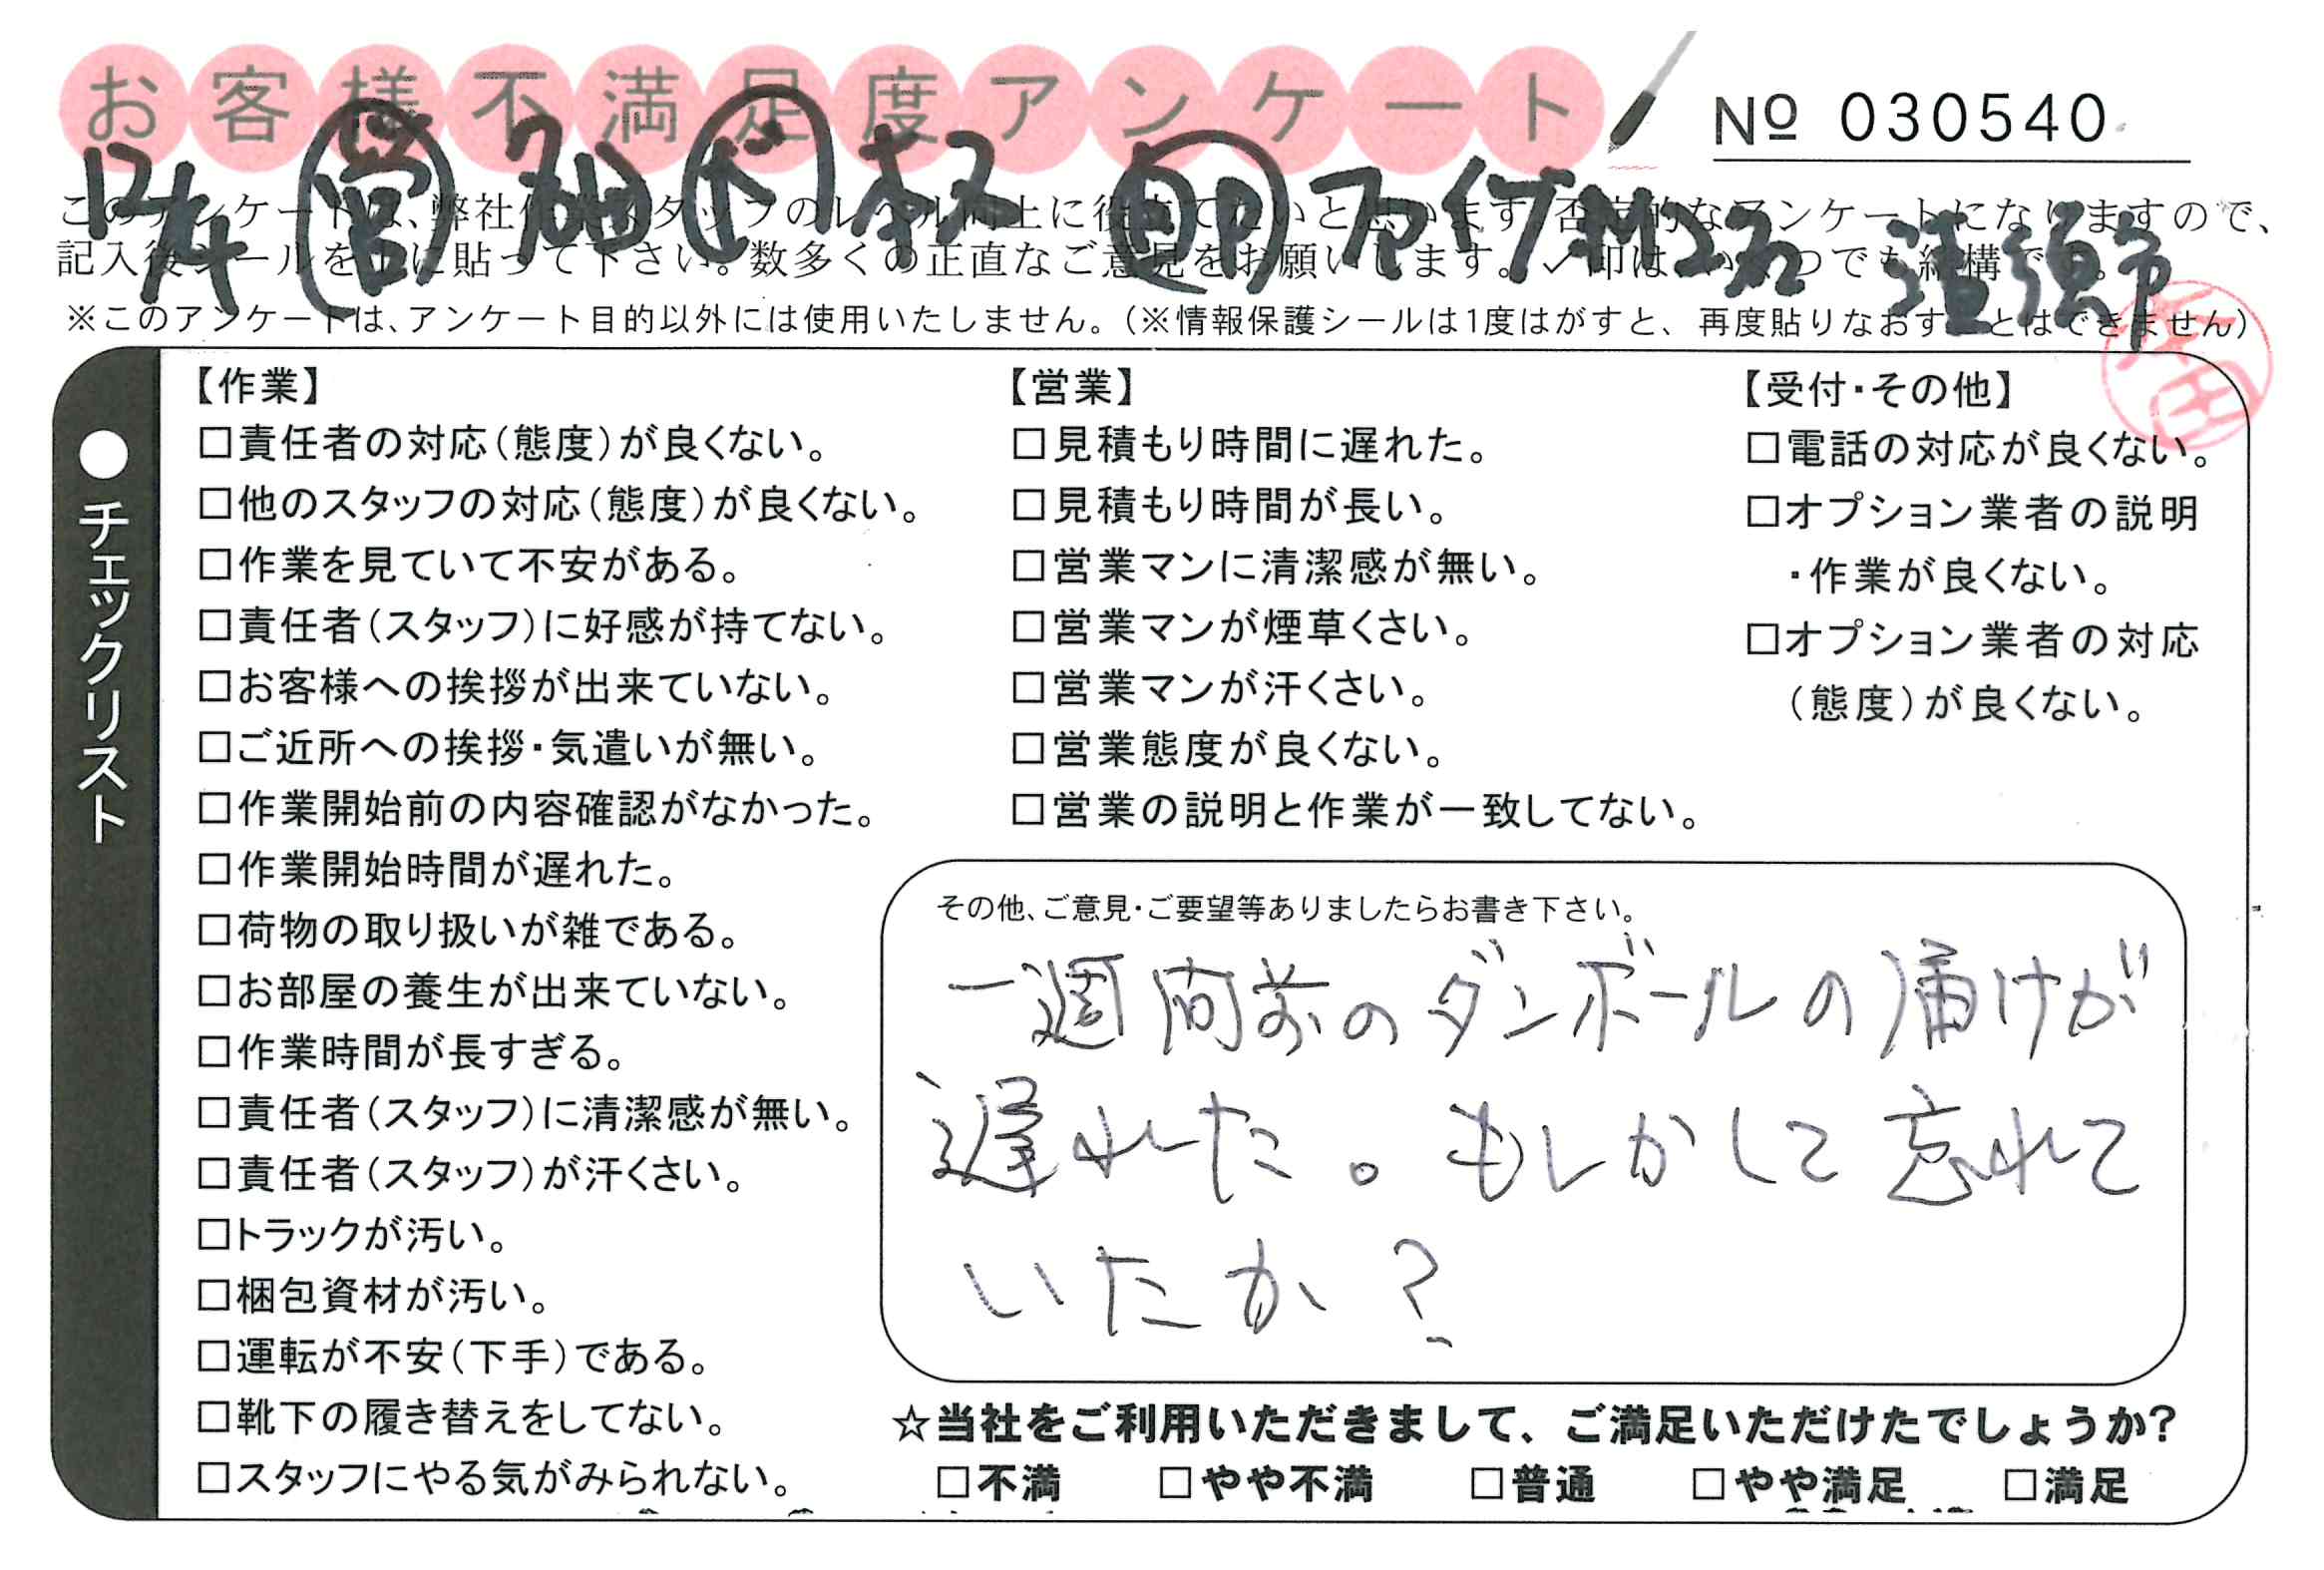 お客様不満足度アンケート
№ 030540
12/4 営 ド 即
このアンケートは、弊社作業スタッフのレベル向上に役立てたいと思います。否定的なアンケートになりますので、
記入後シールを上に貼って下さい。数多くの正直なご意見をお願いします。✓印は、いくつでも結構です。
※このアンケートは、アンケート目的以外には使用いたしません。（※情報保護シールは1度はがすと、再度貼りなおすことはできません）
●チェックリスト
【作業】
□責任者の対応（態度）が良くない。
□他のスタッフの対応（態度）が良くない。
□作業を見ていて不安がある。
□責任者（スタッフ）に好感が持てない。
□お客様への挨拶が出来ていない。
□ご近所への挨拶・気遣いが無い。
□作業開始前の内容確認がなかった。
□作業開始時間が遅れた。
□荷物の取り扱いが雑である。
□お部屋の養生が出来ていない。
□作業時間が長すぎる。
□責任者（スタッフ）に清潔感が無い。
□責任者（スタッフ）が汗くさい。
□トラックが汚い。
□梱包資材が汚い。
□運転が不安（下手）である。
□靴下の履き替えをしてない。
□スタッフにやる気がみられない。
【営業】
□見積もり時間に遅れた。
□見積もり時間が長い。
□営業マンに清潔感が無い。
□営業マンが煙草くさい。
□営業マンが汗くさい。
□営業態度が良くない。
□営業の説明と作業が一致してない。
【受付・その他】
□電話の対応が良くない。
□オプション業者の説明
・作業が良くない。
□オプション業者の対応
（態度）が良くない。
その他、ご意見・ご要望等ありましたらお書き下さい。
一週間前のダンボールの届けが
遅れた。もしかして忘れて
いたか？
☆当社をご利用いただきまして、ご満足いただけたでしょうか？
□不満 □やや不満 □普通 □やや満足 □満足